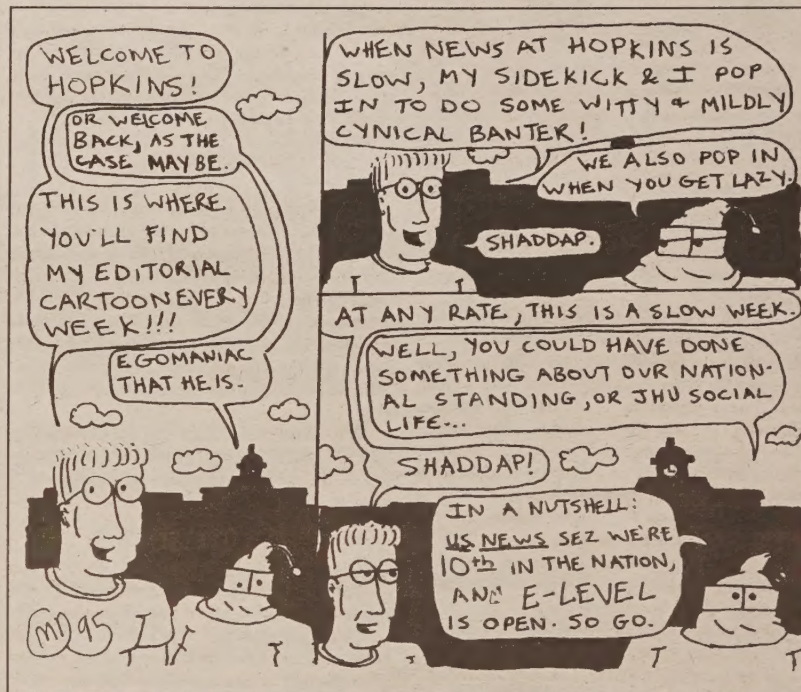 WELCOME TO
HOPKINS!
OR WELCOME
BACK, AS THE
CASE MAY BE.
THIS IS WHERE
YOU'LL FIND
MY EDITORIAL
CARTOON EVERY
WEEK!!!
EGOMANIAC
THAT HE IS.
MD 95
WHEN NEWS AT HOPKINS IS
SLOW, MY SIDEKICK & I POP
IN TO DO SOME WITTY & MILDLY
CYNICAL BANTER!
WE ALSO POP IN
WHEN YOU GET LAZY.
SHADDAP.
AT ANY RATE, THIS IS A SLOW WEEK.
WELL, YOU COULD HAVE DONE
SOMETHING ABOUT OUR NATION-
AL STANDING, OR JHU SOCIAL
LIFE...
SHADDAP!
IN A NUTSHELL:
US NEWS SEZ WE'RE
10th IN THE NATION,
AND E-LEVEL
IS OPEN. SO GO.